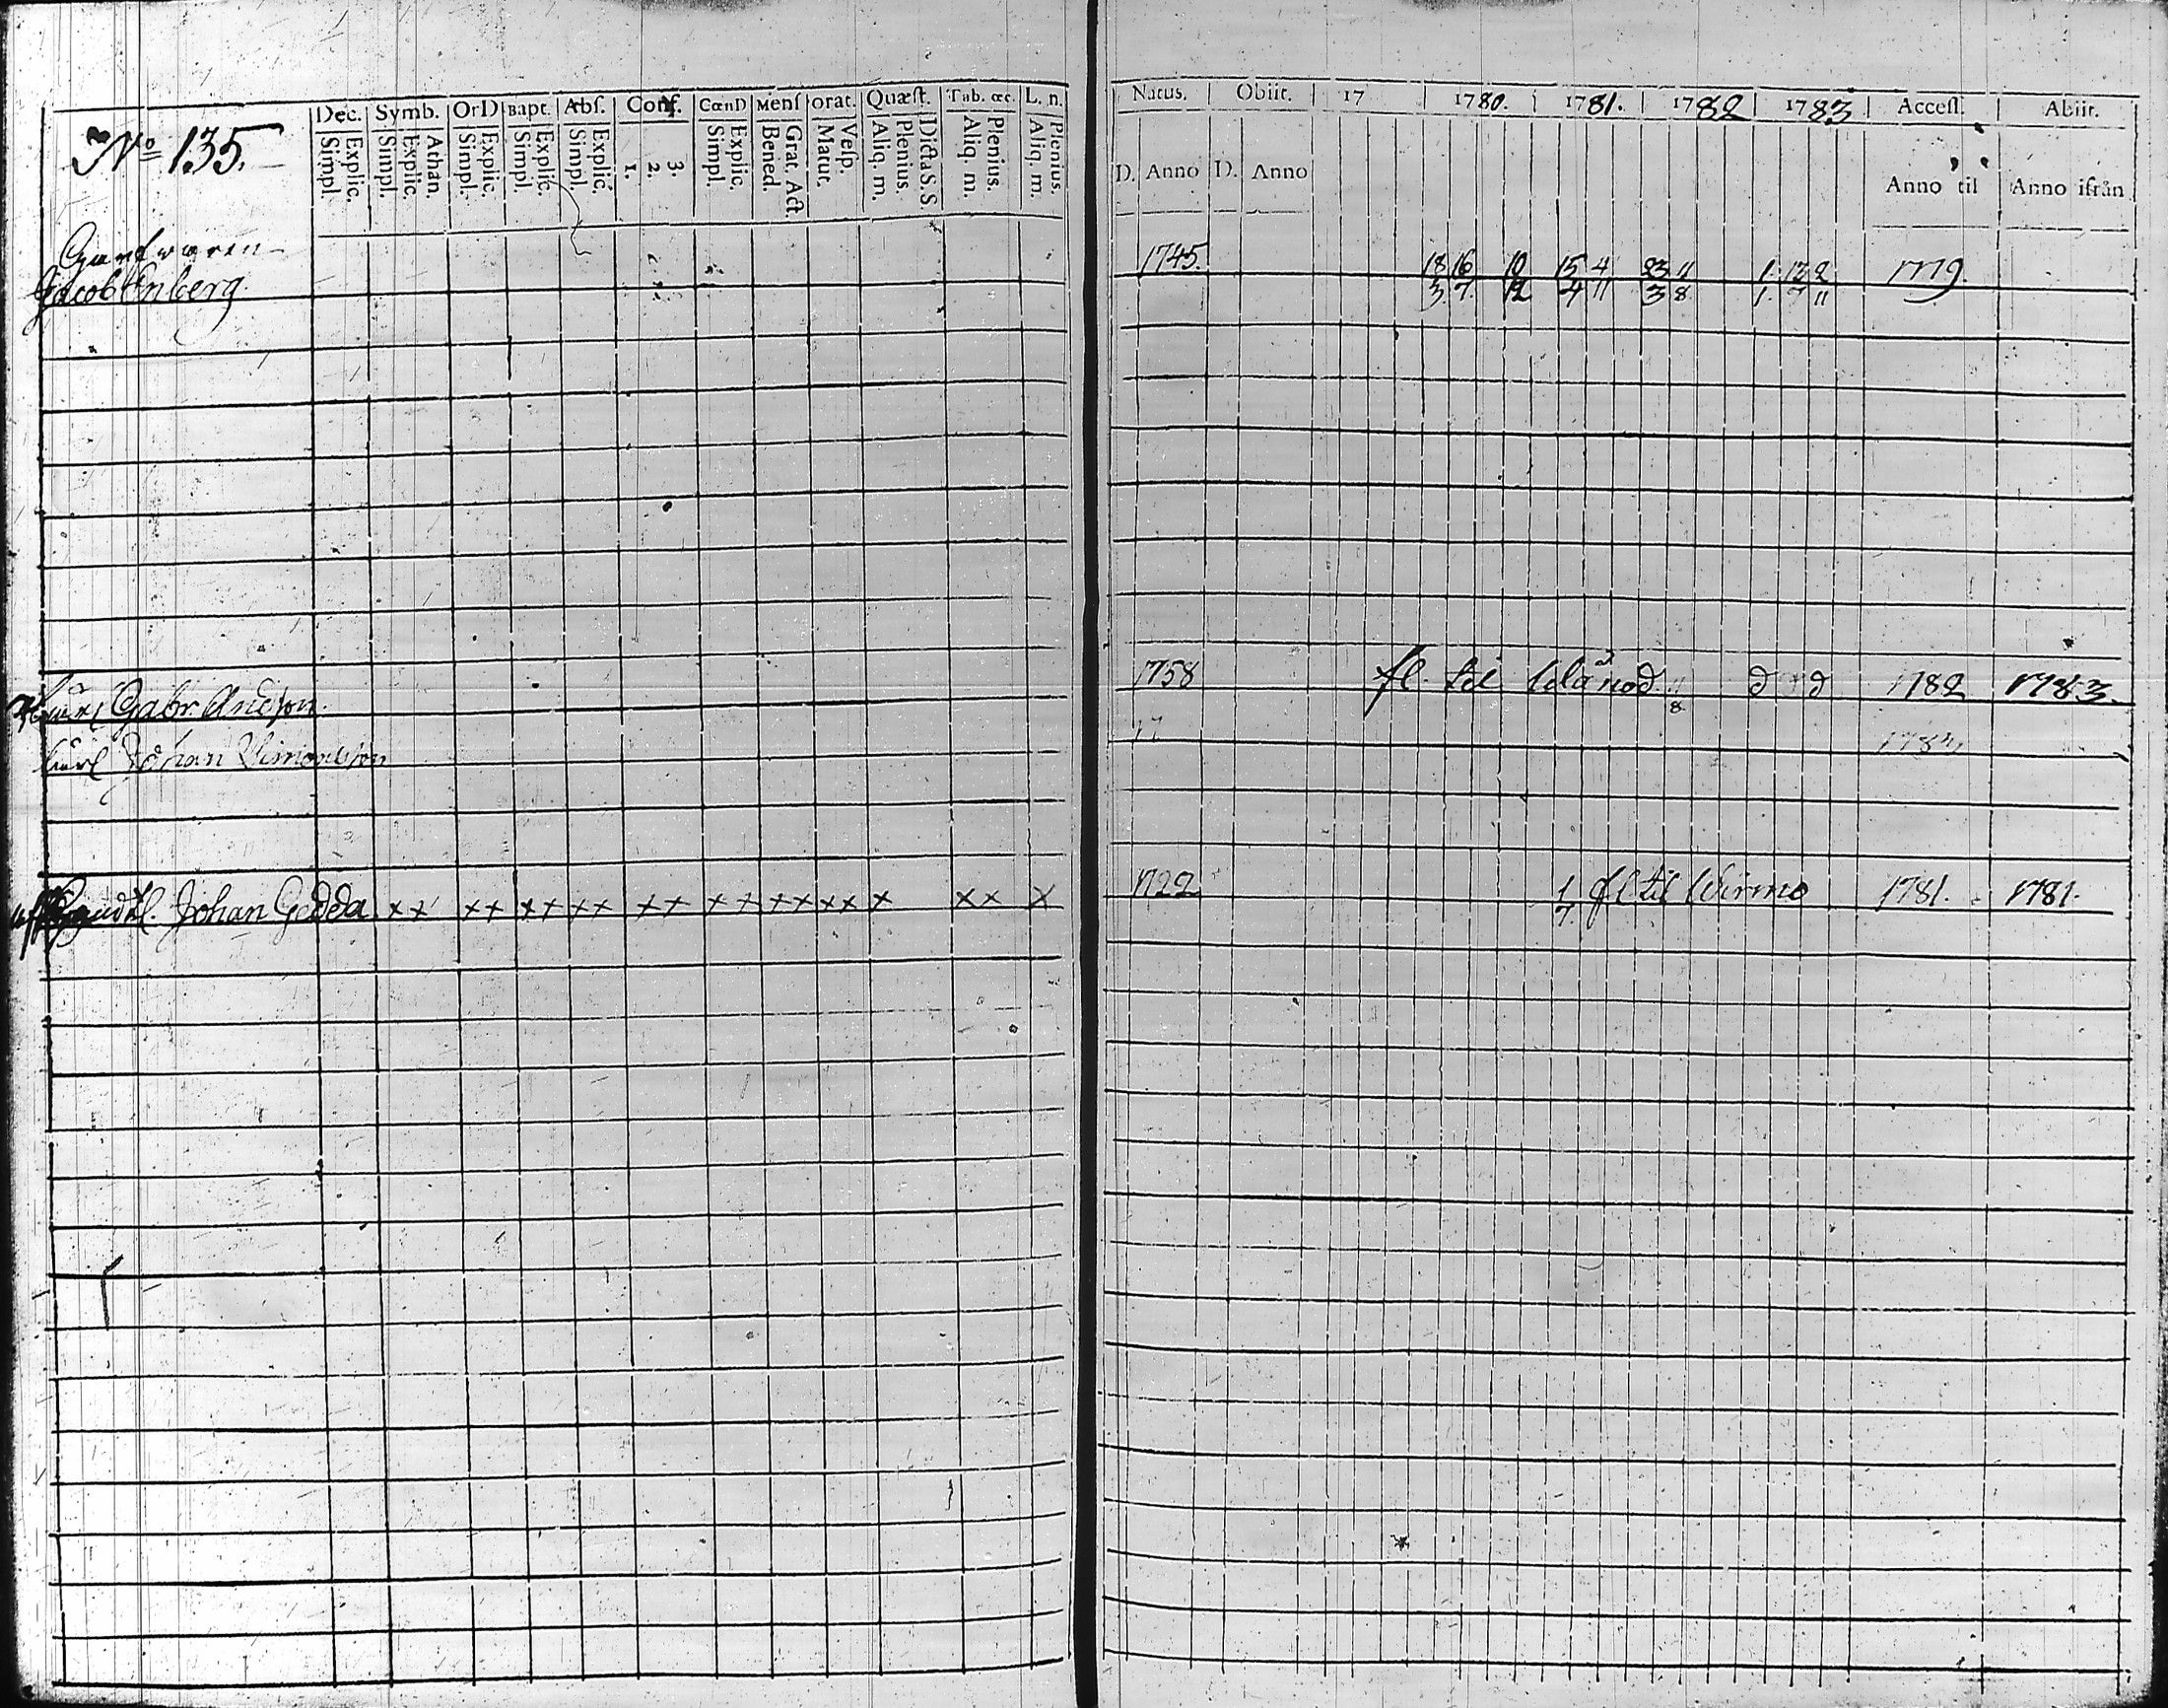 Dec. Symb. OrD Bapt. Abſ. Conf. CœnD Menſ orat. Quæſt. Tab. œc. L. n.
Simpl. Explic. Simpl. Explic. Athan. Simpl. Explic. Simpl. Explic. Simpl. Explic. 1. 2. 3. Simpl. Explic. Bened. Grat. Act. Matut. Veſp. Aliq. m. Plenius. Dicta S. S Aliq. m. Plenius. Aliq. m. Plenius.
Natus. Obiit. 17 1780. 1781. 1782 1783 Acceſſ. Abiit.
D. Anno D. Anno Anno til Anno ifrån
No 135.
Garfwaren
Jacob Enberg 1745. 18 16 10 15 4 23 11 1. 12 2 1779.
3 7. 12 4 11 3 8 1. 7 11
Gabr. Andſon. 1758 fl. til 11 1782 1783.
8
Johan Simonsson 17
Johan Gedda ×× ×× ×× ×× ×× ×× ×× ×× × ×× × 1722 1 fl til Wirmo 1781. 1781.
7